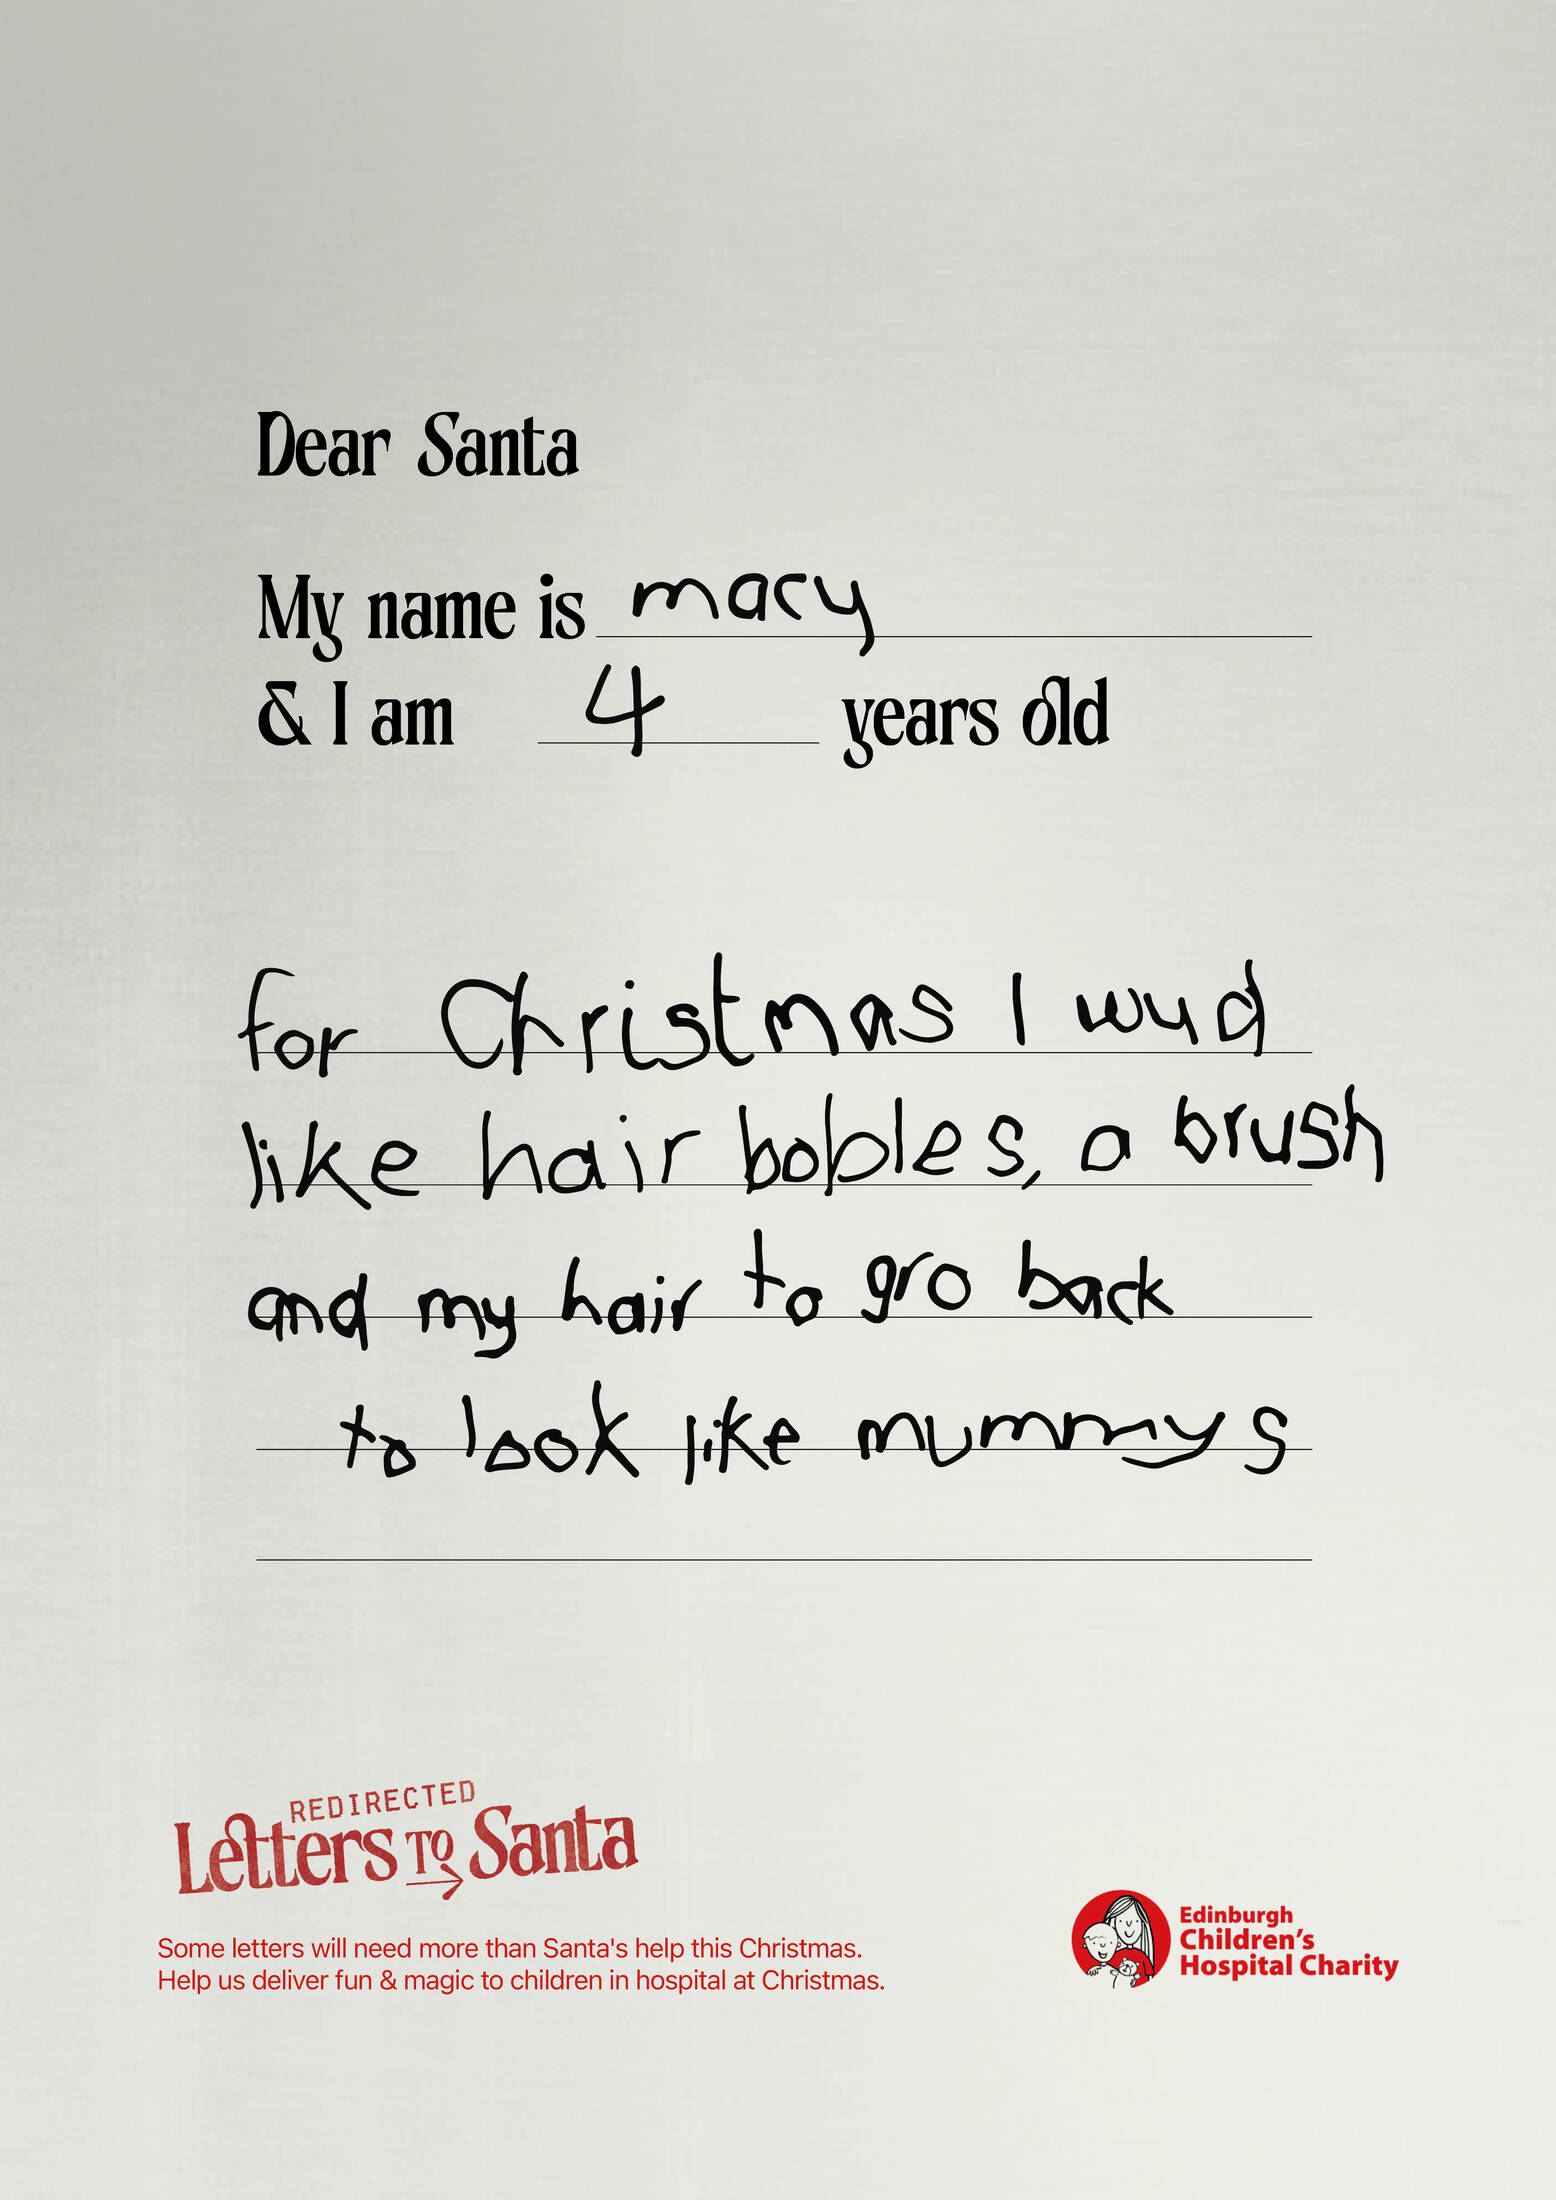 Dear Santa
My name is macy
& I am 4 years old
for Christmas I wud
like hair bobles, a brush
and my hair to gro back
to look like mummys
REDIRECTED
Letters TO Santa
Some letters will need more than Santa's help this Christmas.
Help us deliver fun & magic to children in hospital at Christmas.
Edinburgh
Children's
Hospital Charity